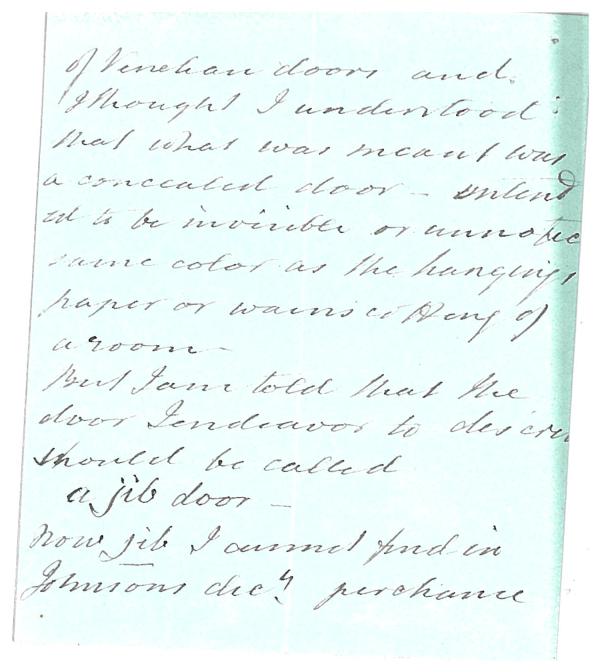 of Venetian doors and
I thought I understood
that what was meant was
a concealed door – intend
ed to be invisible or unnotic
same color as the hangings
paper or wainscotting of
a room –
But I am told that the
door I endeavor to descri
should be called
a jib door –
Now jib I cannot find in
Johnsons dicy perchance